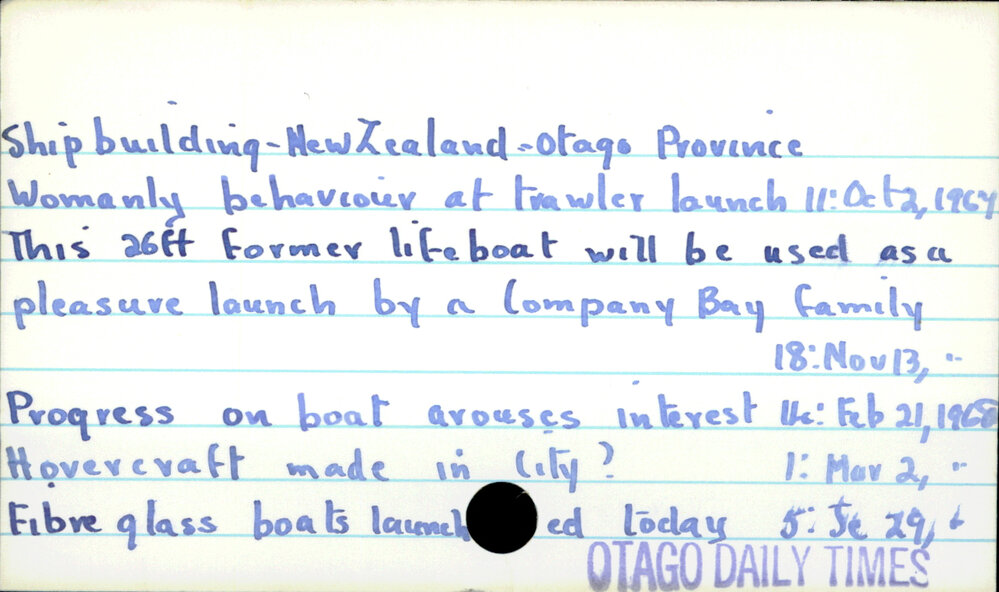 Shipbuilding-New Zealand-Otago Province
Womanly behaviour at trawler launch 11: Oct 2, 1964
This 26ft former lifeboat will be used as a
pleasure launch by a Company Bay family
18: Nov 13, "
Progress on boat arouses interest Feb 21, 1968
Hovercraft made in City? 1: Mar 2, "
Fibreglass boats launched today 5: Je 29,
OTAGO DAILY TIMES